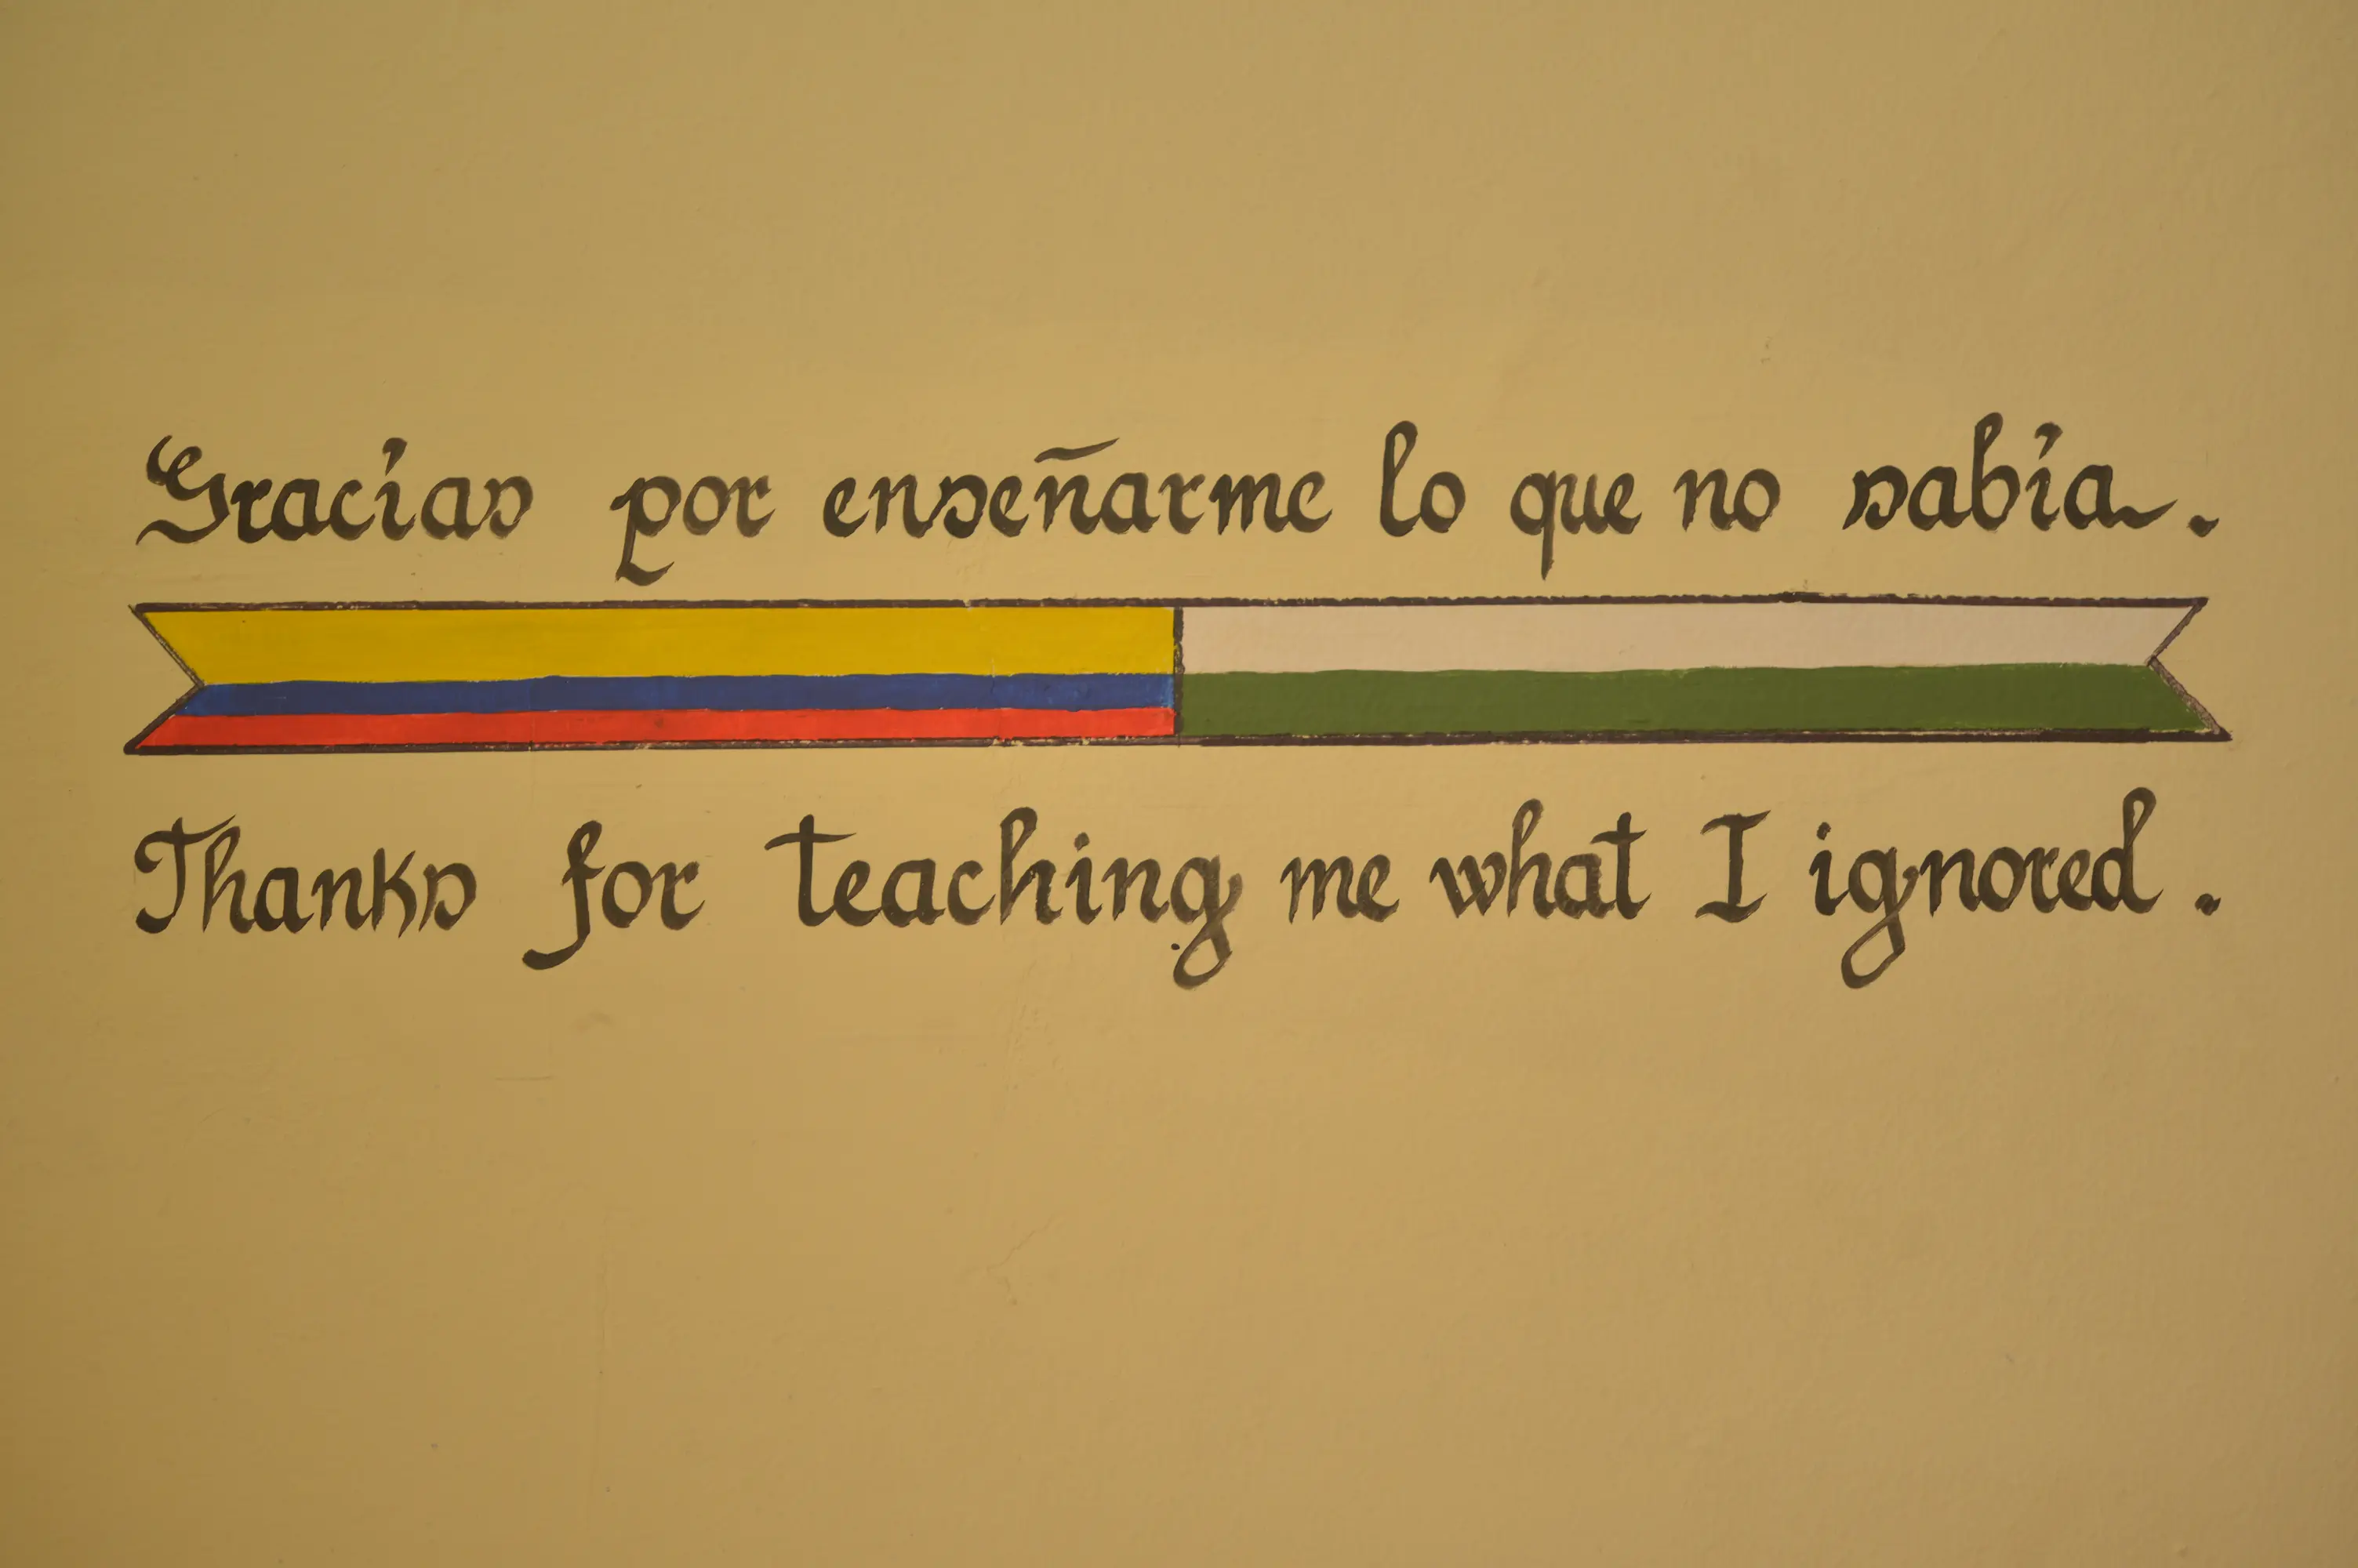 Gracias por enseñarme lo que no sabía.
Thanks for teaching me what I ignored.